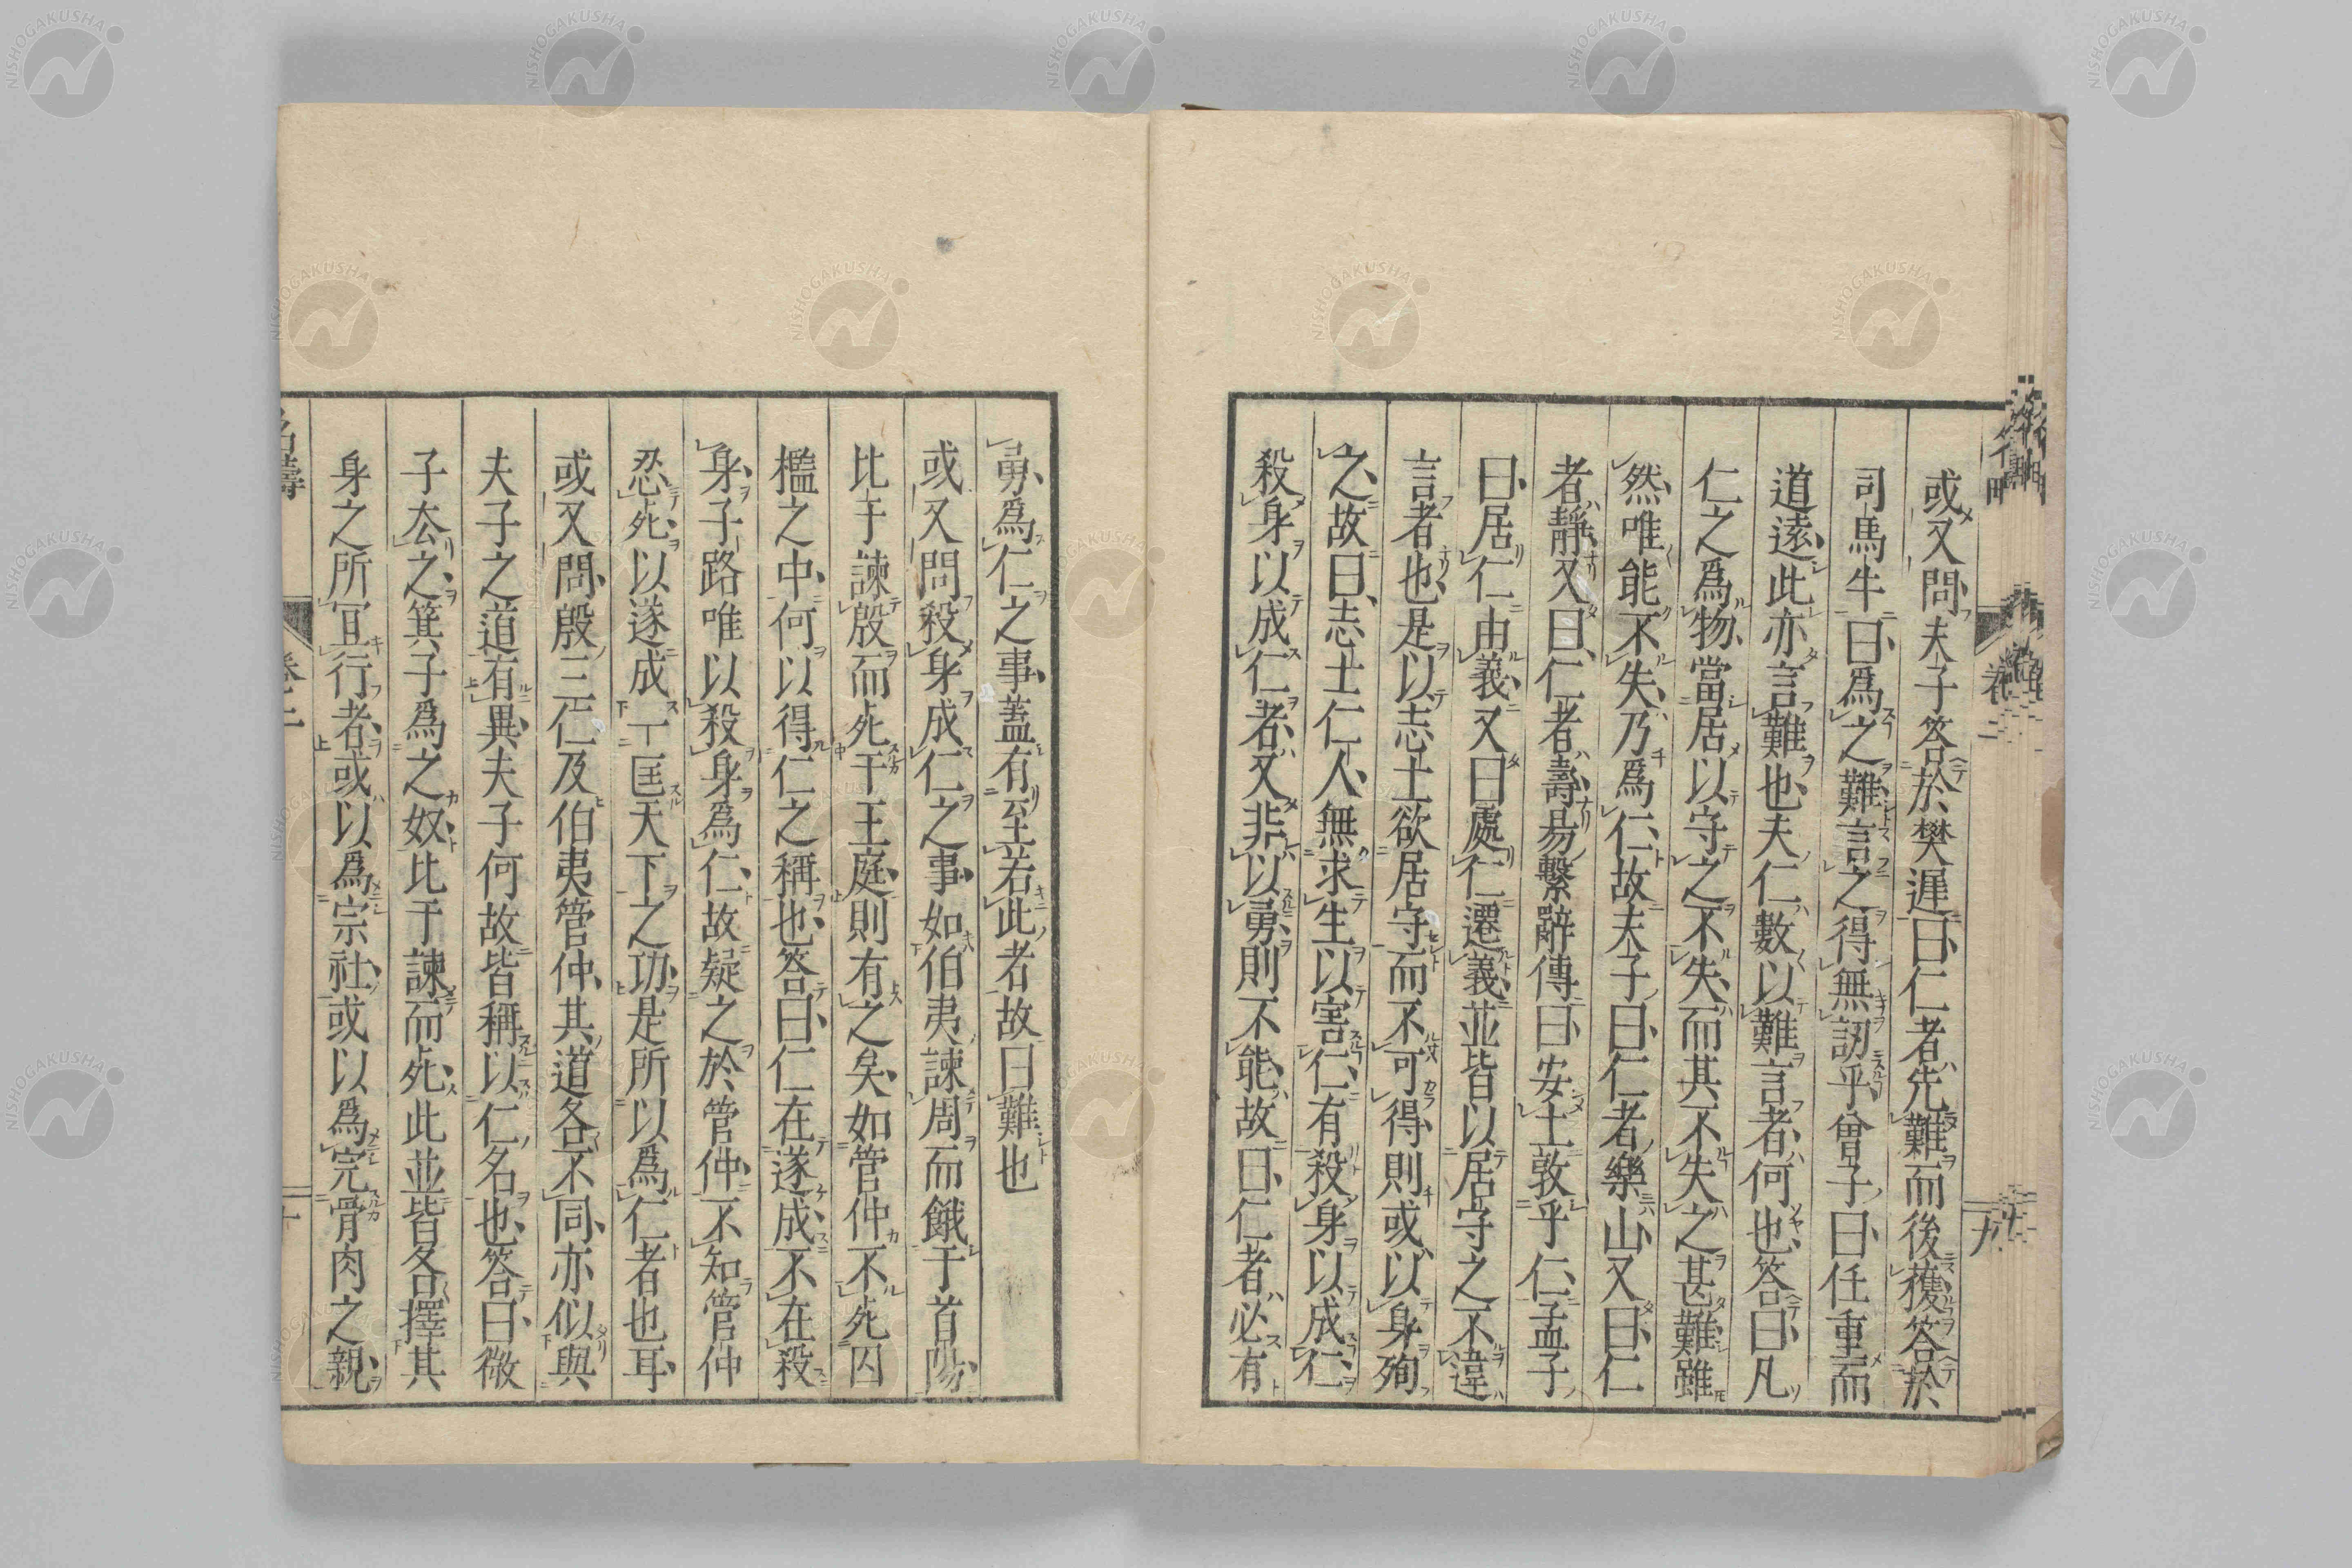 或又問夫子答於樊遲曰仁者先難而後獲答於
司馬牛曰爲之難言之得無訒乎曾子曰任重而
道遠此亦言難也夫仁數以難言者何也答曰凡
仁之爲物當居以守之不失而其不失之甚難雖
然唯能不失乃爲仁故夫子曰仁者樂山又曰仁
者靜又曰仁者壽易繫辭傳曰安土敦乎仁孟子
曰居仁由義又曰處仁遷義並皆以居守之不違
言者也是以志士欲居守而不可得則或以身殉
之故曰志士仁人無求生以害仁有殺身以成仁
殺身以成仁者又非以勇則不能故曰仁者必有
勇爲仁之事蓋有至若此者故曰難也
或又問殺身成仁之事如伯夷諫周而餓于首陽
比干諫殷而死于王庭則有之矣如管仲不死囚
檻之中何以得仁之稱也答曰仁在遂成不在殺
身子路唯以殺身爲仁故疑之於管仲不知管仲
忍死以遂成一匡天下之功是所以爲仁者也耳
或又問殷三仁及伯夷管仲其道各不同亦似與
夫子之道有異夫子何故皆稱以仁名也答曰微
子去之箕子爲之奴比干諫而死此並皆各擇其
身之所宜行者或以爲宗社或以爲完骨肉之親
名疇
卷二
十
卷二
九
NISHOGAKUSHA